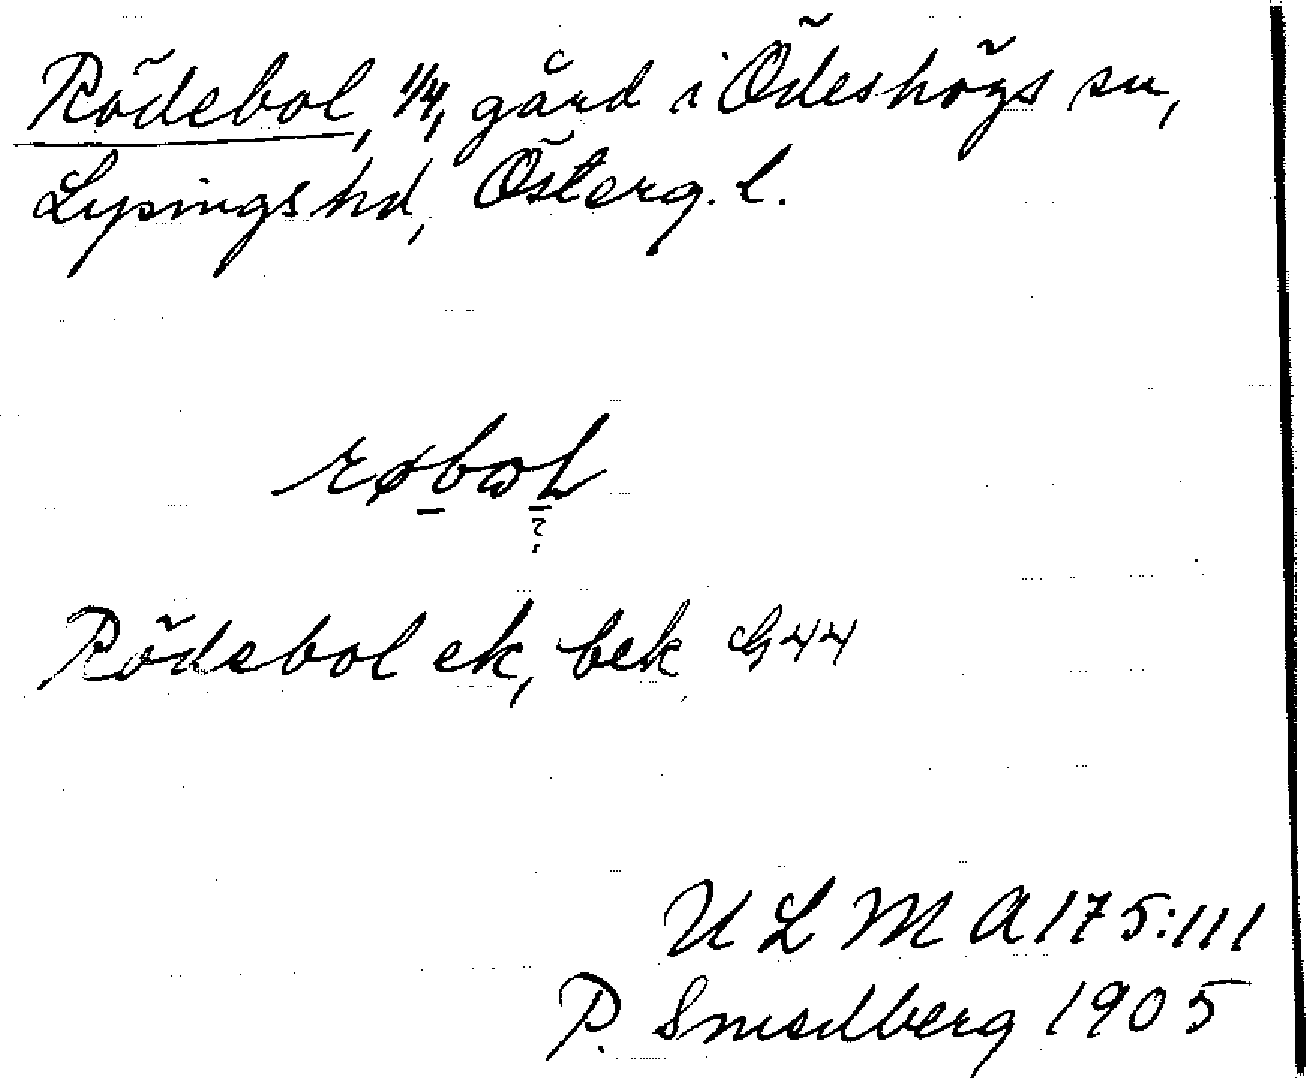 Rödebol, 1/4, gård i Ödeshögs sn,
Lysings hd, Österg. l.
Rödebol ek, bek G44
ULMA 175:111
P. Smedberg 1905